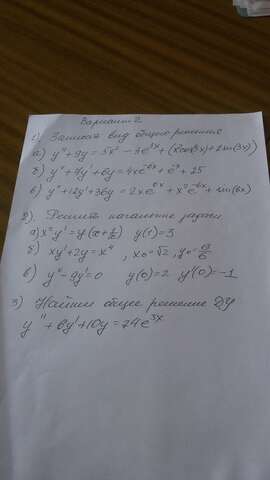 Вариант 2
1) Записать вид общего решения
а) y''+9y=5x²-4e³ˣ+(xcos(3x)+2sin(3x))
б) y''+7y'+6y=4xe⁻⁶ˣ+e⁻ˣ+25
в) y''+12y'+36y=2xe⁶ˣ+x²e⁻⁶ˣ+sin(6x)
2) Решить начальные задачи
а) x²y'=y(x+½) y(1)=3
б) xy'+2y=x⁴, x₀=√2, y=
в) y''-9y'=0 y(0)=2 y'(0)=-1
3) Найти общее решение ДУ
y''+6y'+10y=74e³ˣ